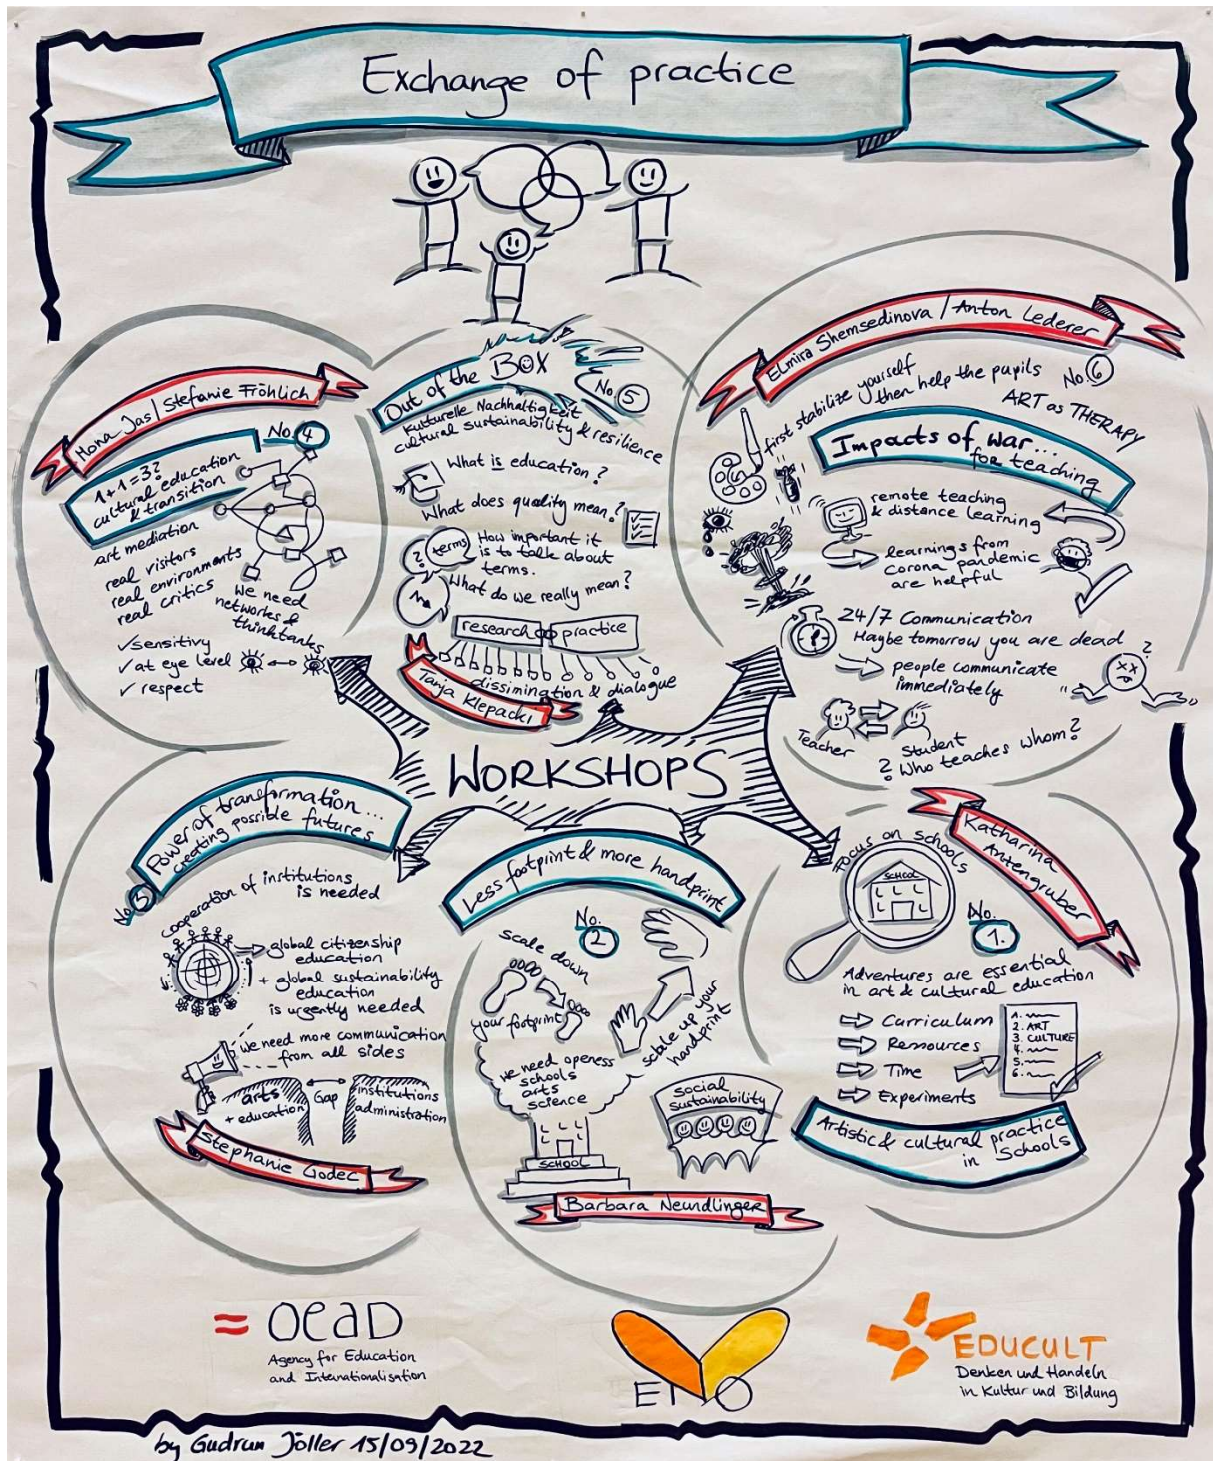 Exchange of practice
Mona Jas / Stefanie Fröhlich
No. 4
1+1=3?
cultural education
& transition
art mediation
real visitors
real environments
real critics
We need
networks &
thinktanks
✓ sensitivy
✓ at eye level
✓ respect
Out of the BOX
No. 5
Kulturelle Nachhaltigkeit
cultural sustainability & resilience
What is education?
What does quality mean?
?
terms
How important it
is to talk about
terms.
What do we really mean?
research
practice
dissimination & dialogue
Tanja Klepacki
Elmira Shemsedinova / Anton Lederer
No. 6
first stabilize yourself
then help the pupils
ART as THERAPY
Impacts of war...
for teaching
remote teaching
& distance learning
learnings from
corona pandemic
are helpful
24/7 Communication
Maybe tomorrow you are dead
?
people communicate
immediately
Teacher
Student
? Who teaches whom?
WORKSHOPS
Power of transformation...
creating possible futures
No. 3
cooperation of institutions
is needed
global citizenship
education
+ global sustainability
education
is urgently needed
we need more communication
from all sides
arts
+ education
Gap
institutions
administration
Stephanie Godec
Less footprint & more handprint
No. 2
scale down
your footprint
scale up your
handprint
we need openess
schools
arts
science
SCHOOL
social
sustainability
Barbara Neundlinger
Katharina
Antengruber
Focus on schools
SCHOOL
No. 1.
Adventures are essential
in art & cultural education
Curriculum
Ressources
Time
Experiments
1.
2. ART
3. CULTURE
4.
5.
6.
Artistic & cultural practice
in Schools
= OeaD
Agency for Education
and Internationalisation
ENO
EDUCULT
Denken und Handeln
in Kultur und Bildung
by Gudrun Jöller 15/09/2022